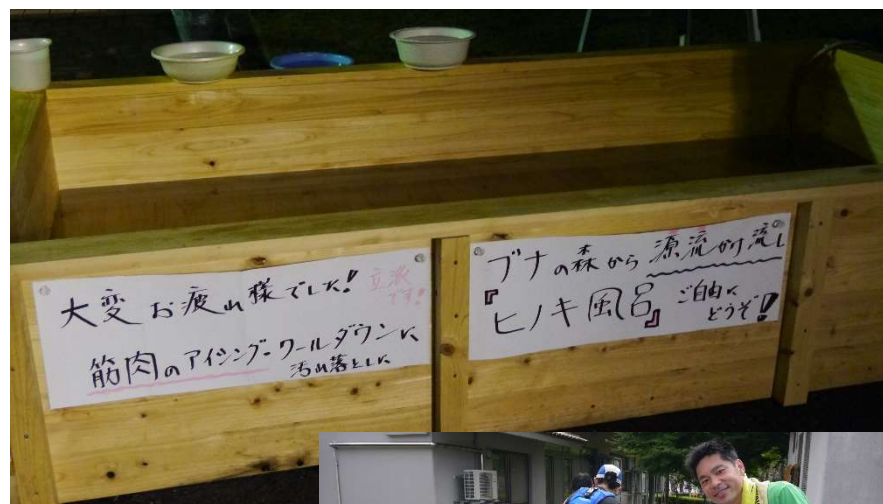 大変お疲れ様でした! 立派です!
筋肉のアイシング-クールダウンに、
汚れ落としに
ブナの森から源流かけ流し
『ヒノキ風呂』ご自由にどうぞ!